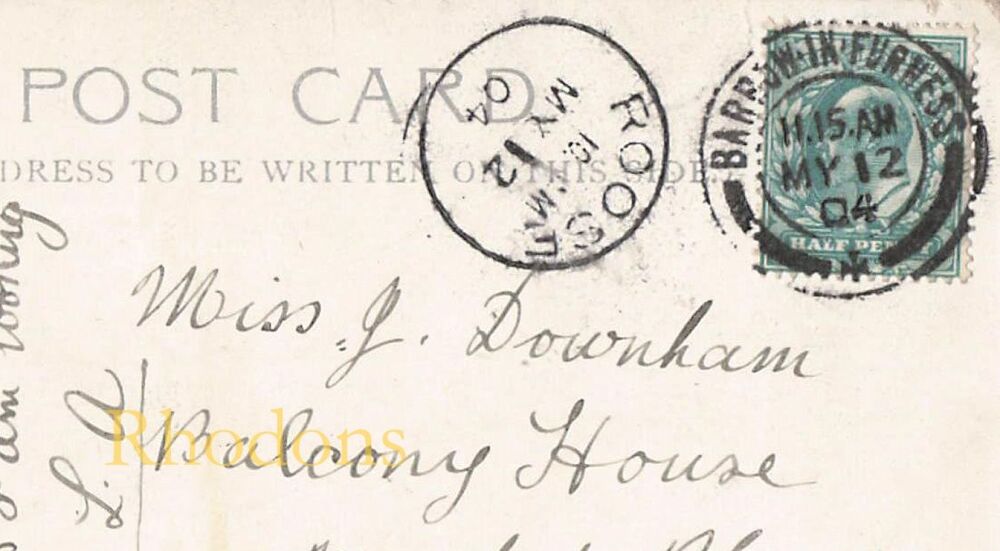 POST CARD
DRESS TO BE WRITTEN ON THIS SIDE
ROOSE
MY 12
04
BARROW-IN-FURNESS
11.15.AM
MY 12
04
HALF PEN
Miss J. Downham
Balcony House
am
Rhodons